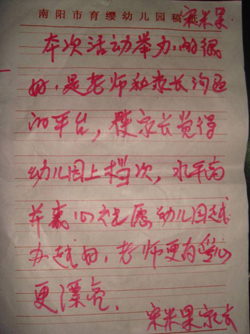 南阳市育缨幼儿园稿 宋米果
本次活动举办的很
好，是老师和家长沟通
的平台，使家长觉得
幼儿园上档次，水平高
并衷心祝愿幼儿园越
办越好，老师更有爱心
更漂亮．
宋米果家长